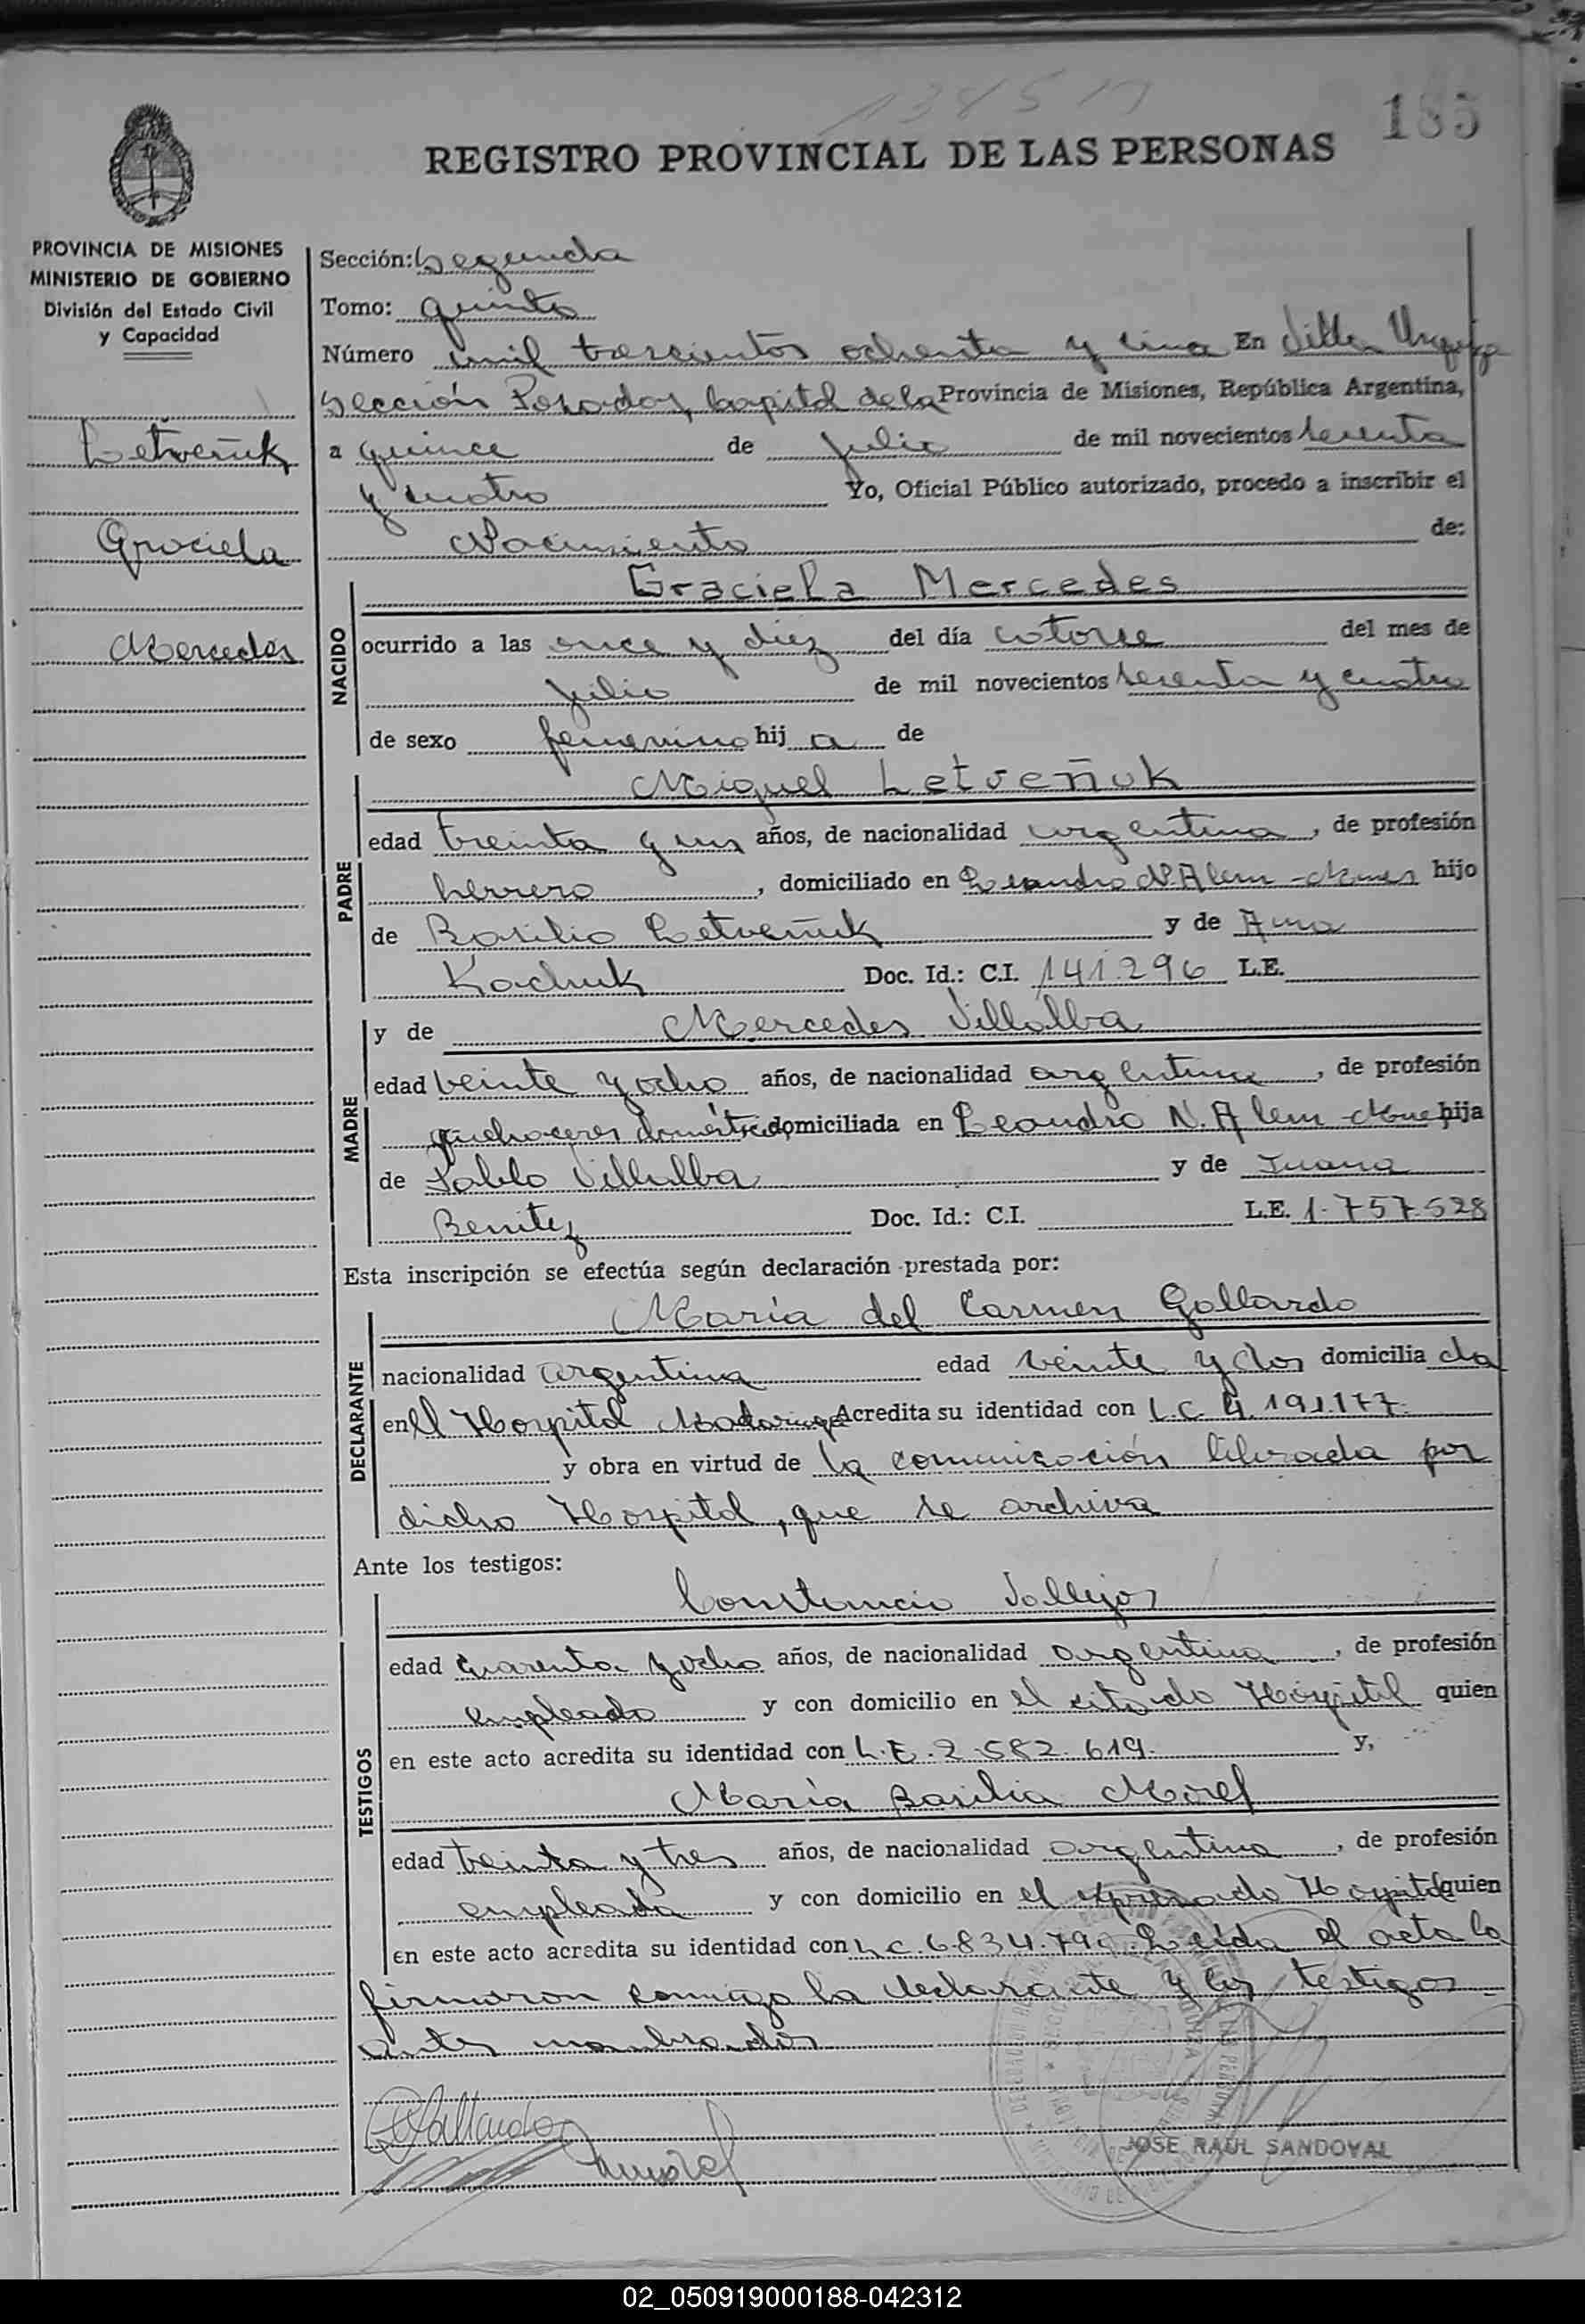 185
REGISTRO PROVINCIAL DE LAS PERSONAS
PROVINCIA DE MISIONES
MINISTERIO DE GOBIERNO
División del Estado Civil
y Capacidad
Letveñuk
Graciela
Mercedes
Sección: Segunda
Tomo: quinto
Número mil trescientos ochenta y uno En Villa Urquiza
Sección Posadas, Capital de la Provincia de Misiones, República Argentina,
a quince de julio de mil novecientos
y cuatro Yo, Oficial Público autorizado, procedo a inscribir el
Nacimiento de:
NACIDO
Graciela Mercedes
ocurrido a las once y diez del día catorce del mes de
julio de mil novecientos y cuatro
de sexo femenino hij a de
PADRE
Miguel Letveñuk
edad treinta y un años, de nacionalidad argentina, de profesión
herrero, domiciliado en Leandro N. Alem - Mnes hijo
de Basilio Letveñuk y de Ana
Kachuk Doc. Id.: C.I. 141.296 L.E.
MADRE
y de Mercedes Villalba
edad veinte y ocho años, de nacionalidad argentina, de profesión
quehaceres domésticos, domiciliada en Leandro N. Alem - Mnes hija
de Pablo Villalba y de Juana
Benitez Doc. Id.: C.I. L.E. 1.757.528
Esta inscripción se efectúa según declaración prestada por:
DECLARANTE
María del Carmen Gallardo
nacionalidad argentina edad veinte y dos domicilia da
en el Hospital Madariaga Acredita su identidad con L.C. 4.191.177.
y obra en virtud de la comunicación librada por
dicho Hospital, que se archiva
Ante los testigos:
TESTIGOS
Constancio Vallejos
edad cuarenta y ocho años, de nacionalidad argentina, de profesión
empleado y con domicilio en el citado Hospital quien
en este acto acredita su identidad con L.E. 2.582.619. y,
María Basilia Morel
edad treinta y tres años, de nacionalidad argentina, de profesión
empleada y con domicilio en el expresado Hospital quien
en este acto acredita su identidad con L.C. 6.834.790. Leída el acta la
firmaron conmigo la declarante y los testigos
antes nombrados
Gallardo
JOSE RAUL SANDOVAL
02_050919000188-042312